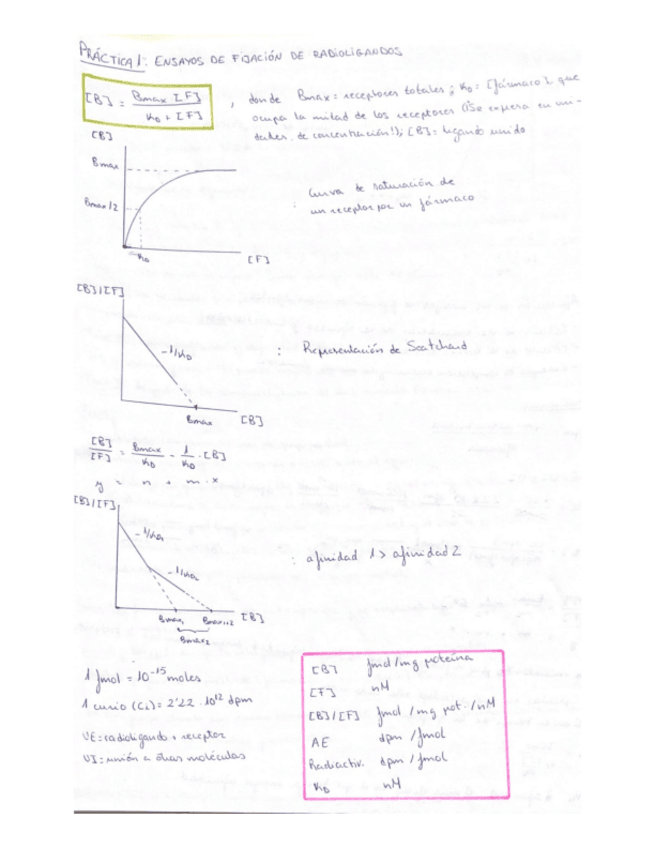 PRÁCTICA 1: ENSAYOS DE FIJACIÓN DE RADIOLIGANDOS
[B] = Bmax [F] / KD + [F] , donde Bmax = receptores totales ; KD = [fármaco] que
ocupa la mitad de los receptores (¡Se expresa en uni-
dades de concentración!); [B] = ligando unido
[B]
Bmax
Bmax/2
KD
[F]
: Curva de saturación de
un receptor por un fármaco
[B]/[F]
-1/KD
Bmax [B]
: Representación de Scatchard
[B]/[F] = Bmax/KD - 1/KD · [B]
y = n + m · x
[B]/[F]
-1/KD1
-1/KD2
Bmax1 Bmax1+2 [B]
Bmax2
: afinidad 1 > afinidad 2
1 fmol = 10^-15 moles
1 curio (Ci) = 2'22 · 10^12 dpm
UE = radioligando + receptor
UI = unión a otras moléculas
[B] fmol/mg proteína
[F] nM
[B]/[F] fmol/mg prot./nM
AE dpm/fmol
Radiactiv. dpm/fmol
KD nM